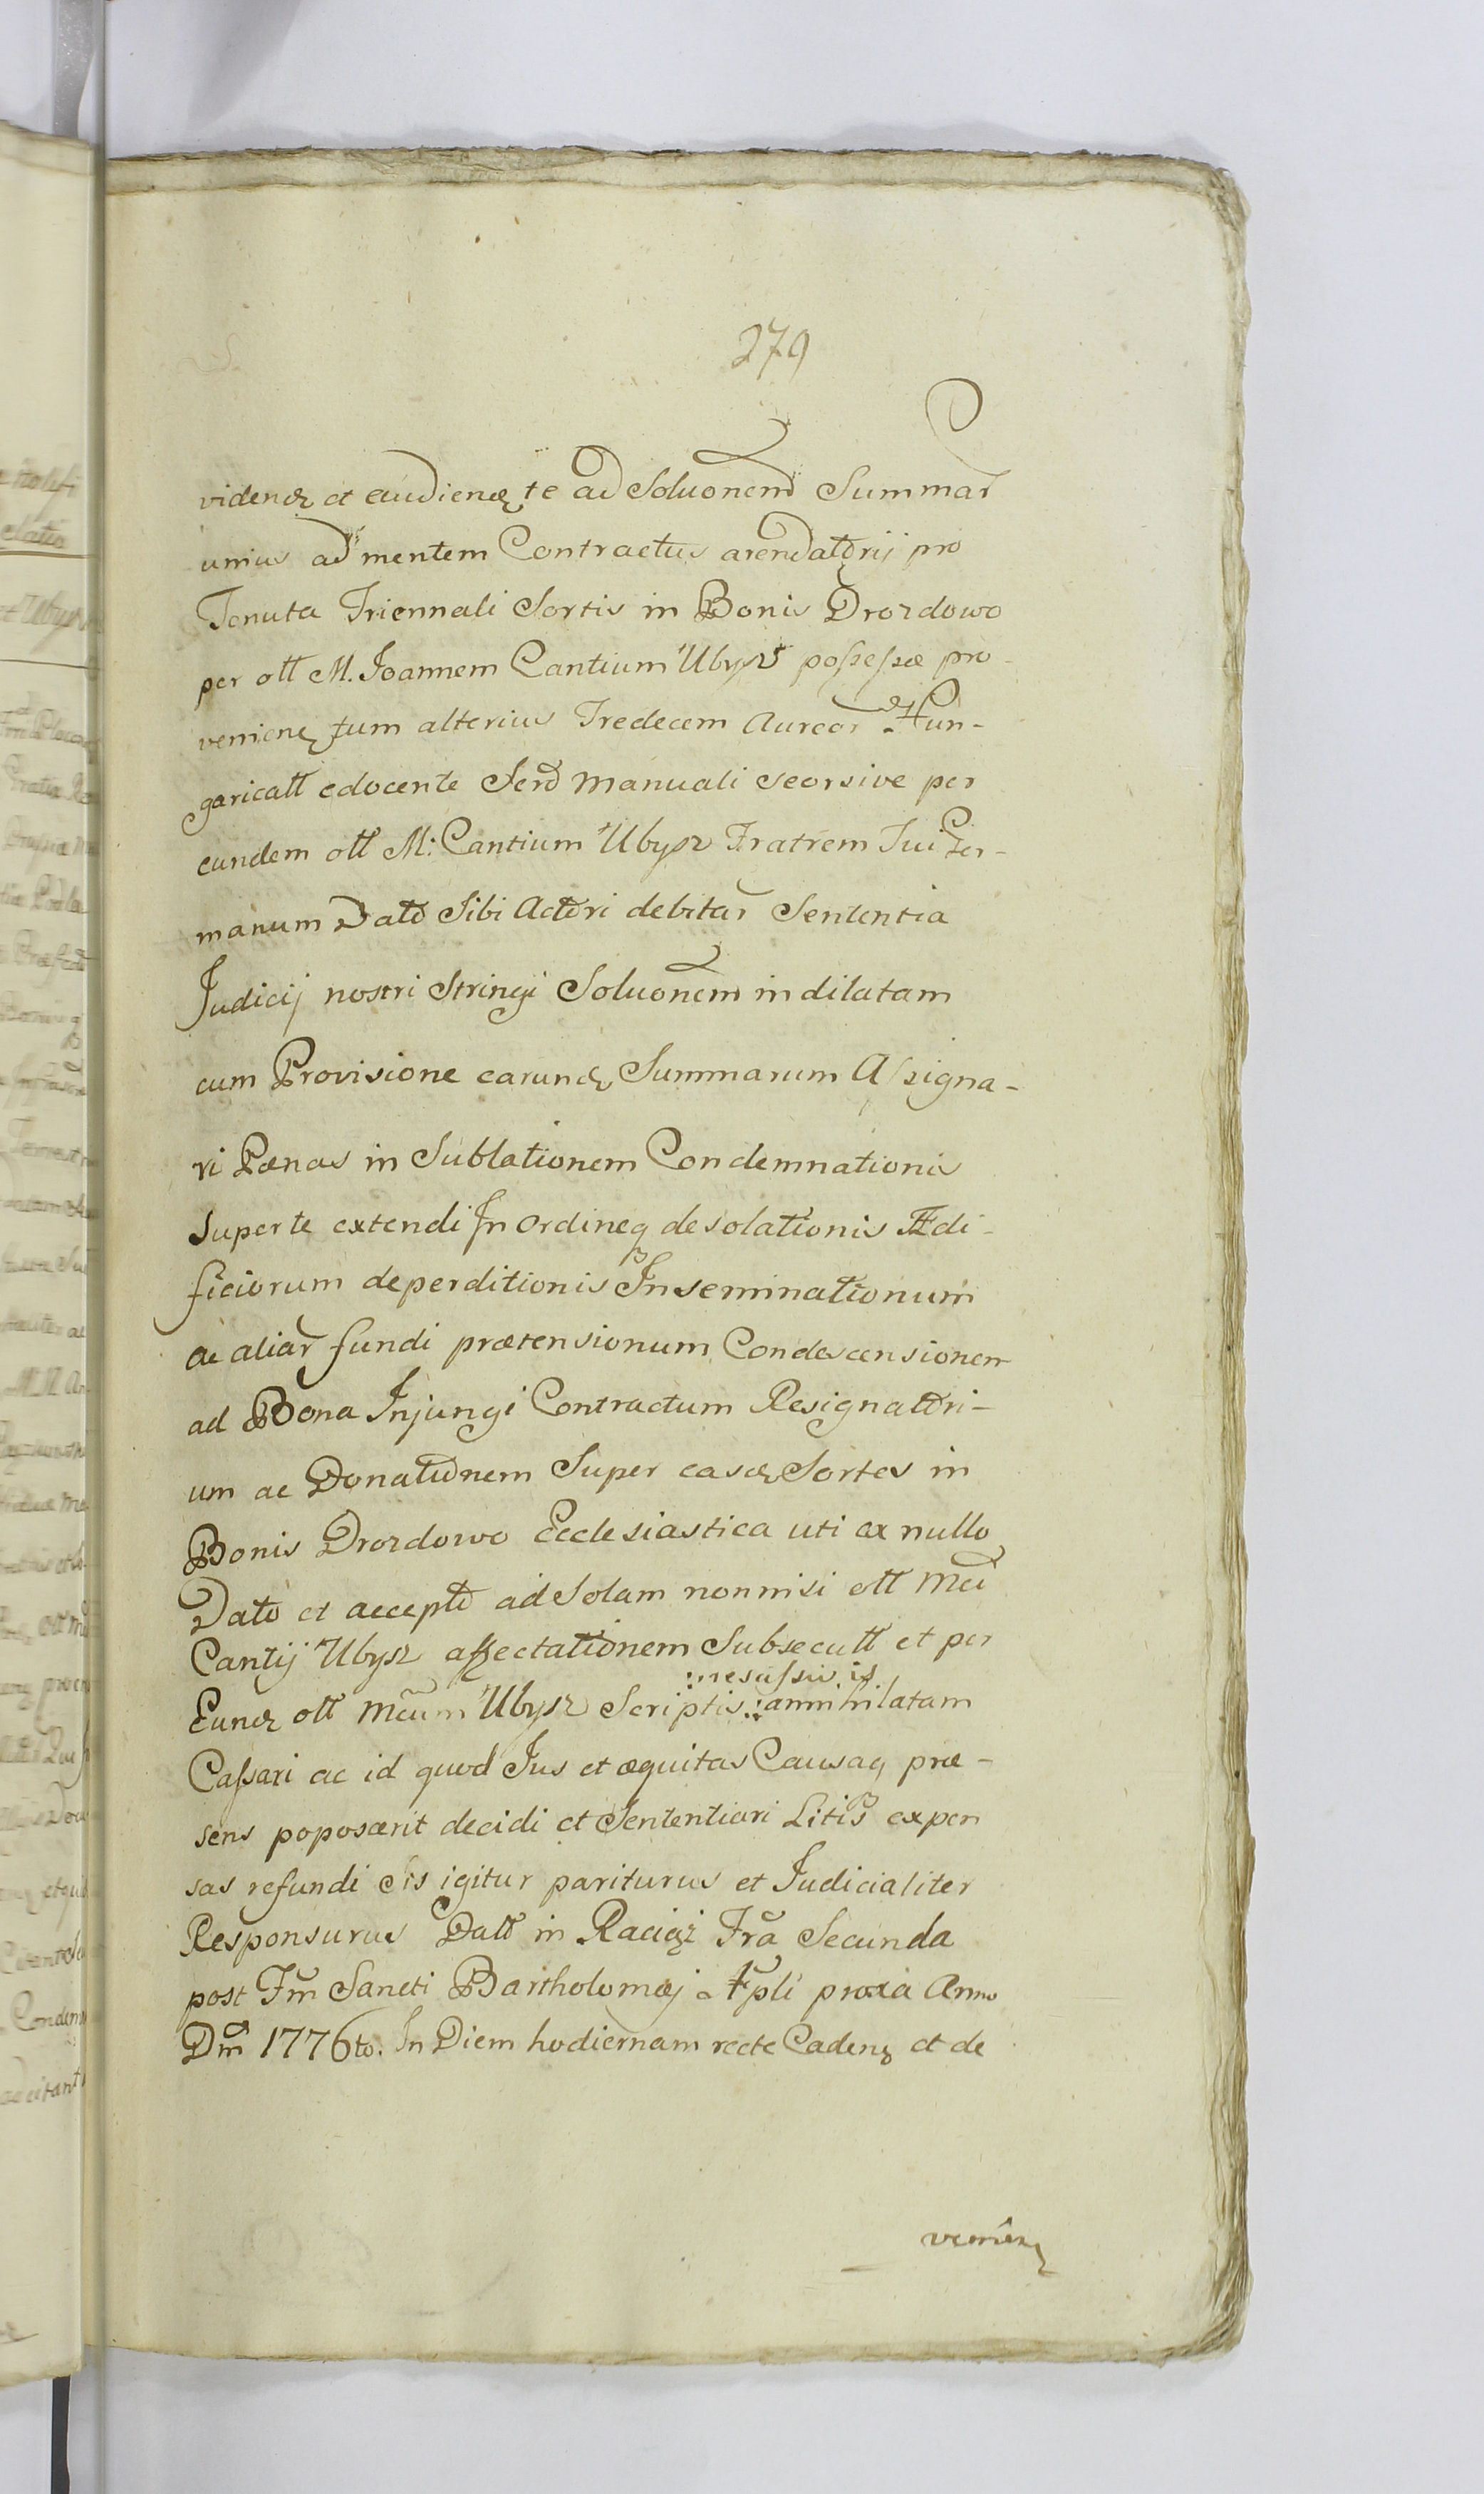 279
videndꝫ et audiendꝫ te ad Soluonem Summar
unius ad mentem Contractus arendatorij pro
Tenuta Triennali Sortis in Bonis Drozdowo
per olt M. Joannem Cantium Ubysz possessæ pro-
venienꝫ tum alterius Tredecem Aureor Hun-
garicalt edocente Scro Manuali seorsive per
eundem olt M: Cantium Ubysz Fratrem Tui Ger-
manum Dato Sibi Actori debitar Sententia
Judicij nostri Stringi Soluonem indilatam
cum Provisione earundꝫ Summarum Assigna-
ri Pænas in Sublationem Condemnationis
Super te extendi In ordineq desolationis Ædi-
ficiorum deperditionis Inseminationum
ac aliar fundi prætensionum Condescensionem
ad Bona Injungi Contractum Resignatori-
um ac Donationem Super easdꝫ Sortes in
Bonis Drozdowo Ecclesiastica uti ex nullo
Dato et accepto ad Solam nonnisi olt Mci
Cantij Ubysz affectationem Subsecutt et per
Eundꝫ olt Mcum Ubysz Scriptis annihilatam
Cassari ac id quod Jus et æquitas Causaq præ-
sens poposcerit decidi et Sententiari Litis expen
sas refundi Sis igitur pariturus et Judicialiter
Responsurus Datt in Raciąż Fra Secunda
post Fm Sancti Bartholomæj Apli proxia Anno
Dm 1776to. In Diem hodiernam recte Cadenꝫ et de
venienꝫ